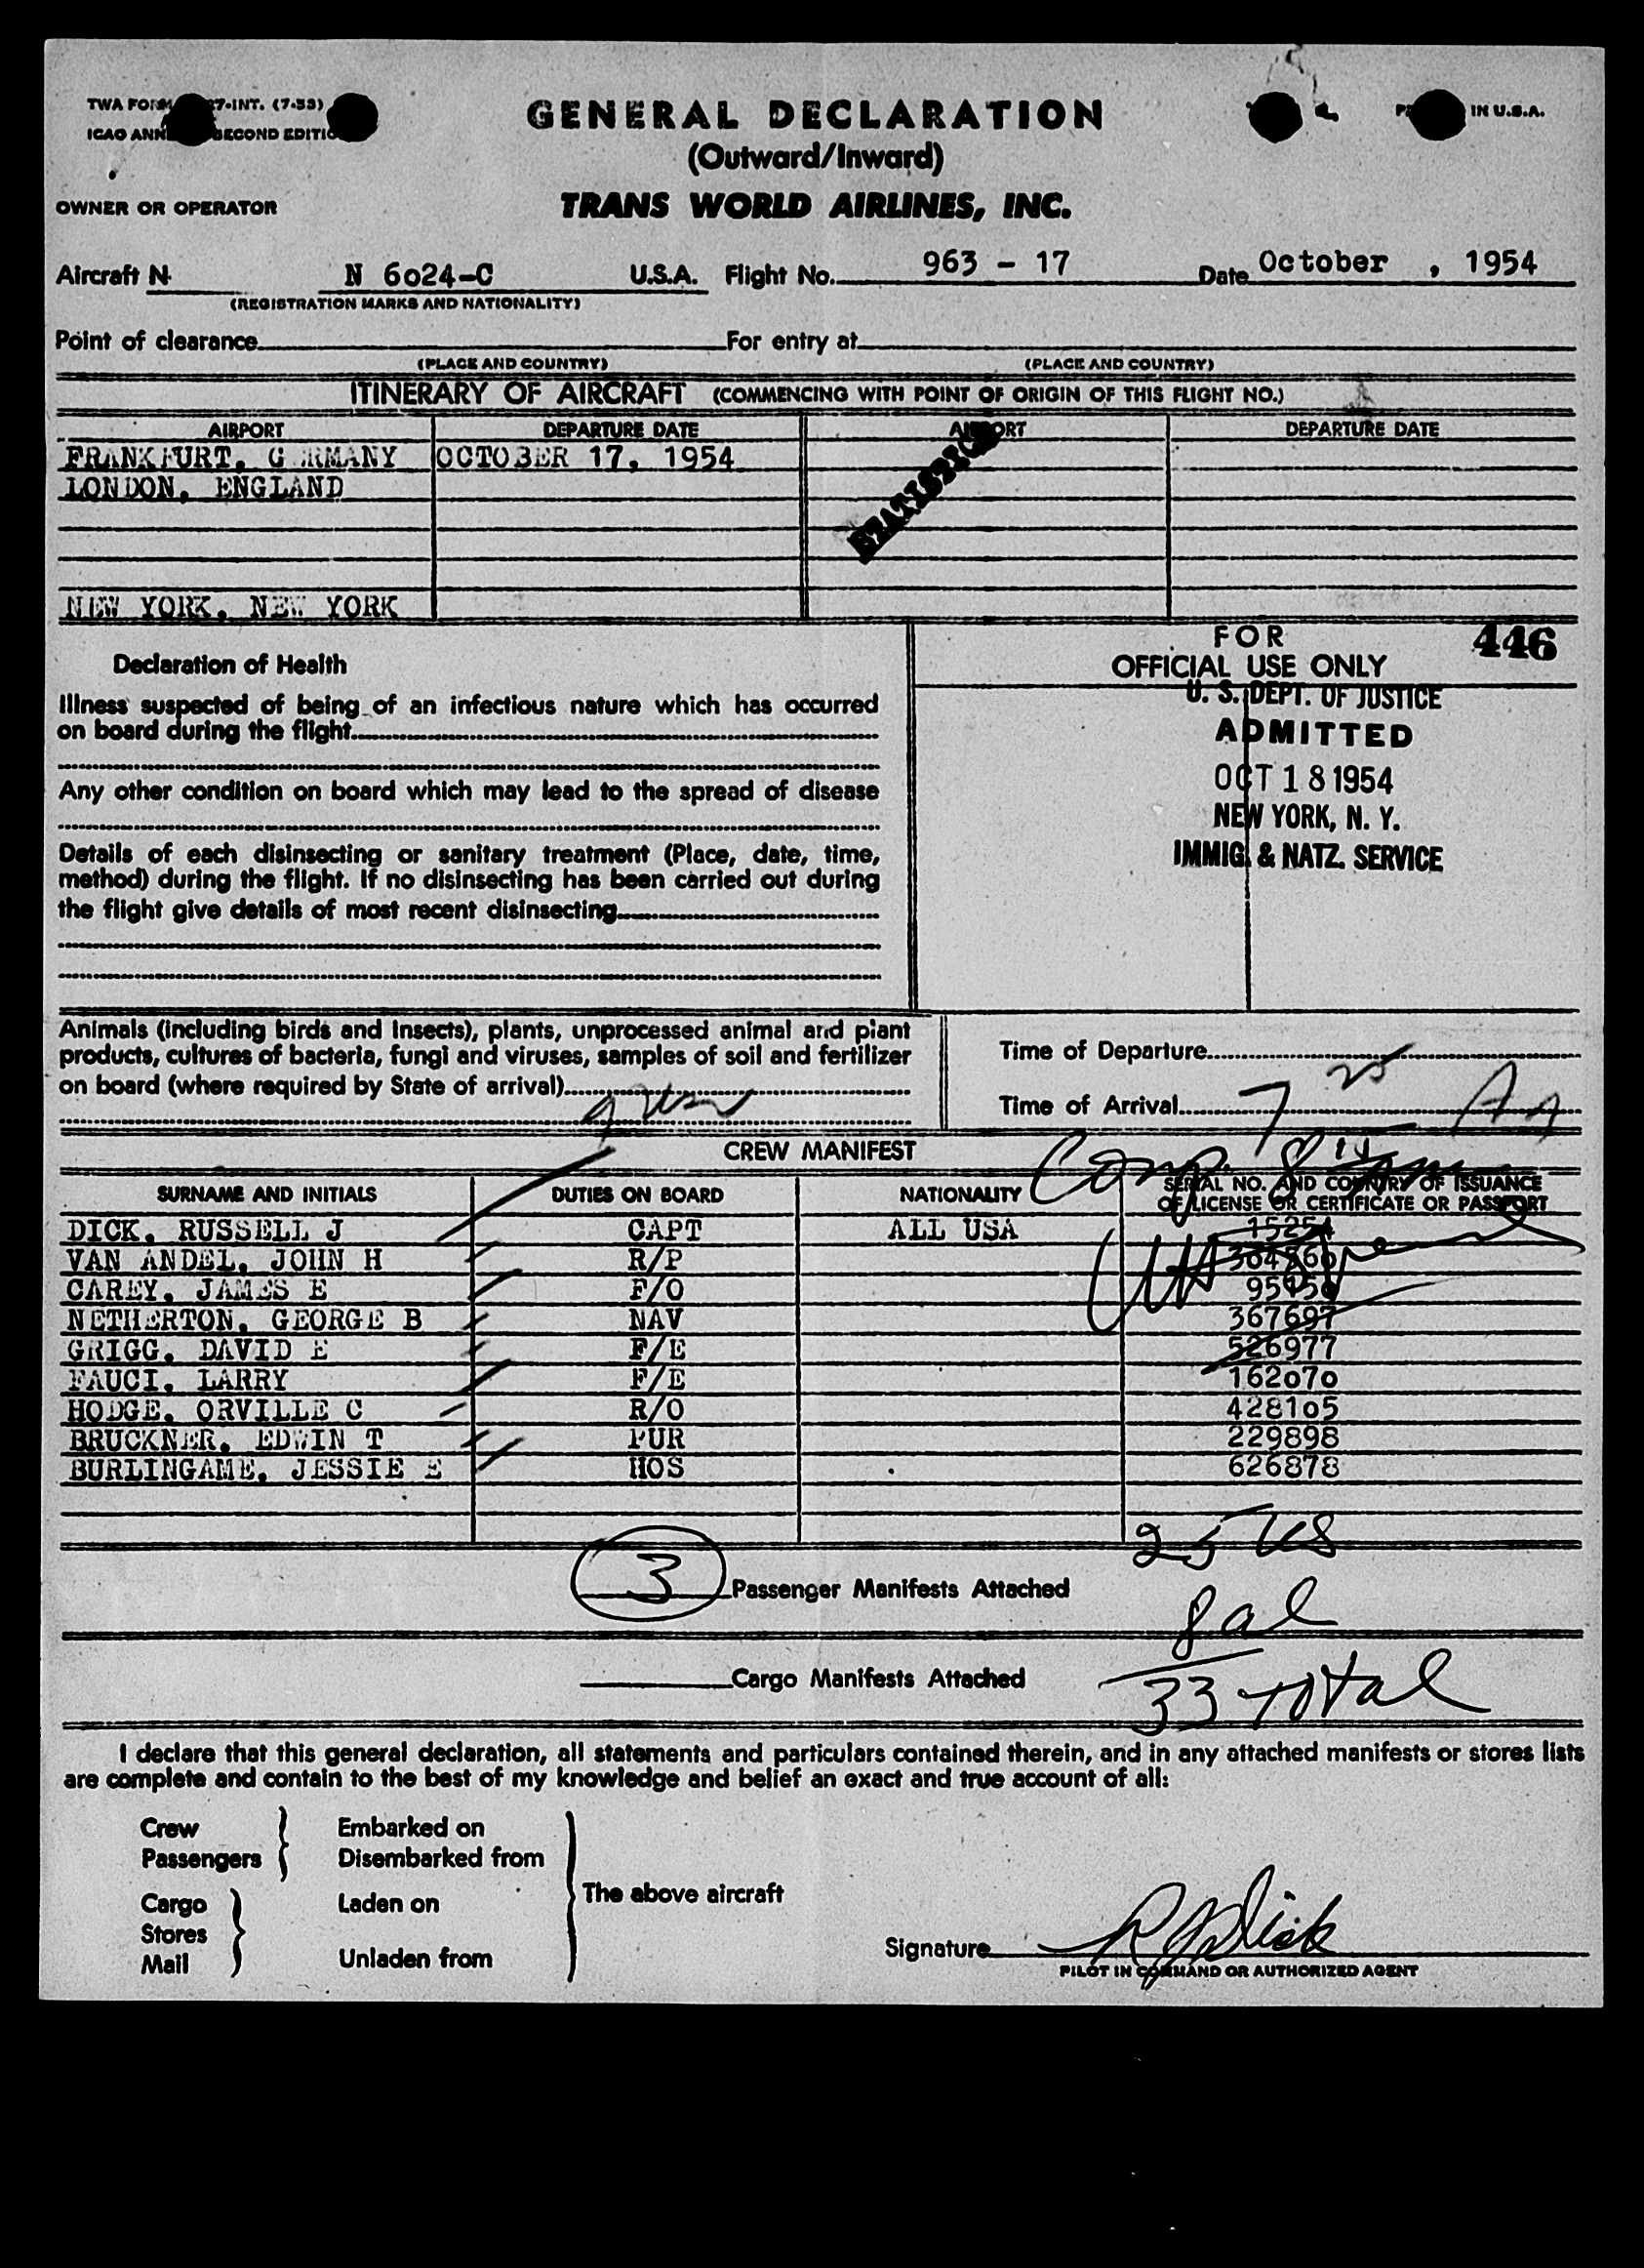 GENERAL DECLARATION
(Outward/Inward)
TRANS WORLD AIRLINES, INC.
TWA 7-INT. (7-53)
ICAO SECOND
IN U.S.A.
OWNER OR OPERATOR
Aircraft N N 6024-C U.S.A. Flight No. 963 - 17 Date October , 1954
(REGISTRATION MARKS AND NATIONALITY)
Point of clearance For entry at
(PLACE AND COUNTRY) (PLACE AND COUNTRY)
ITINERARY OF AIRCRAFT (COMMENCING WITH POINT OF ORIGIN OF THIS FLIGHT NO.)
AIRPORT DEPARTURE DATE AIRPORT DEPARTURE DATE
FRANKFURT, GERMANY OCTOBER 17, 1954
LONDON, ENGLAND
STATISTICS
NEW YORK, NEW YORK
FOR 446
OFFICIAL USE ONLY
U. S. DEPT. OF JUSTICE
ADMITTED
OCT 18 1954
NEW YORK, N. Y.
IMMIG. & NATZ. SERVICE
Declaration of Health
Illness suspected of being of an infectious nature which has occurred
on board during the flight
Any other condition on board which may lead to the spread of disease
Details of each disinsecting or sanitary treatment (Place, date, time,
method) during the flight. If no disinsecting has been carried out during
the flight give details of most recent disinsecting
Animals (including birds and insects), plants, unprocessed animal and plant
products, cultures of bacteria, fungi and viruses, samples of soil and fertilizer
on board (where required by State of arrival)
Time of Departure
Time of Arrival 7 25 A
CREW MANIFEST
Comp. 8 15
SURNAME AND INITIALS DUTIES ON BOARD NATIONALITY SERIAL NO. AND COUNTRY OF ISSUANCE
OF LICENSE OR CERTIFICATE OR PASSPORT
DICK, RUSSELL J CAPT ALL USA 15254
VAN ANDEL, JOHN H R/P
CAREY, JAMES E F/O
NETHERTON, GEORGE B NAV 367697
GRIGG, DAVID E F/E 526977
FAUCI, LARRY F/E 162070
HODGE, ORVILLE C R/O 428105
BRUCKNER, EDWIN T PUR 229898
BURLINGAME, JESSIE E HOS 626878
25 US
3 Passenger Manifests Attached
8 al
Cargo Manifests Attached
33 total
I declare that this general declaration, all statements and particulars contained therein, and in any attached manifests or stores lists
are complete and contain to the best of my knowledge and belief an exact and true account of all:
Crew Embarked on
Passengers Disembarked from
The above aircraft
Cargo Laden on
Stores
Mail Unladen from
Signature R J Dick
PILOT IN COMMAND OR AUTHORIZED AGENT